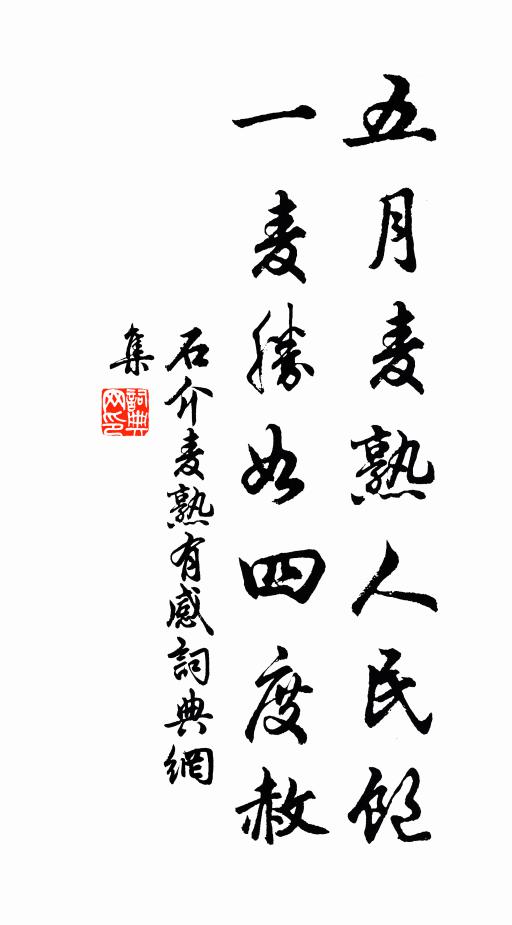 五月麦熟人民飽
一麦勝如四度赦
石介麦熟有感詞典網
集
詞典
网印